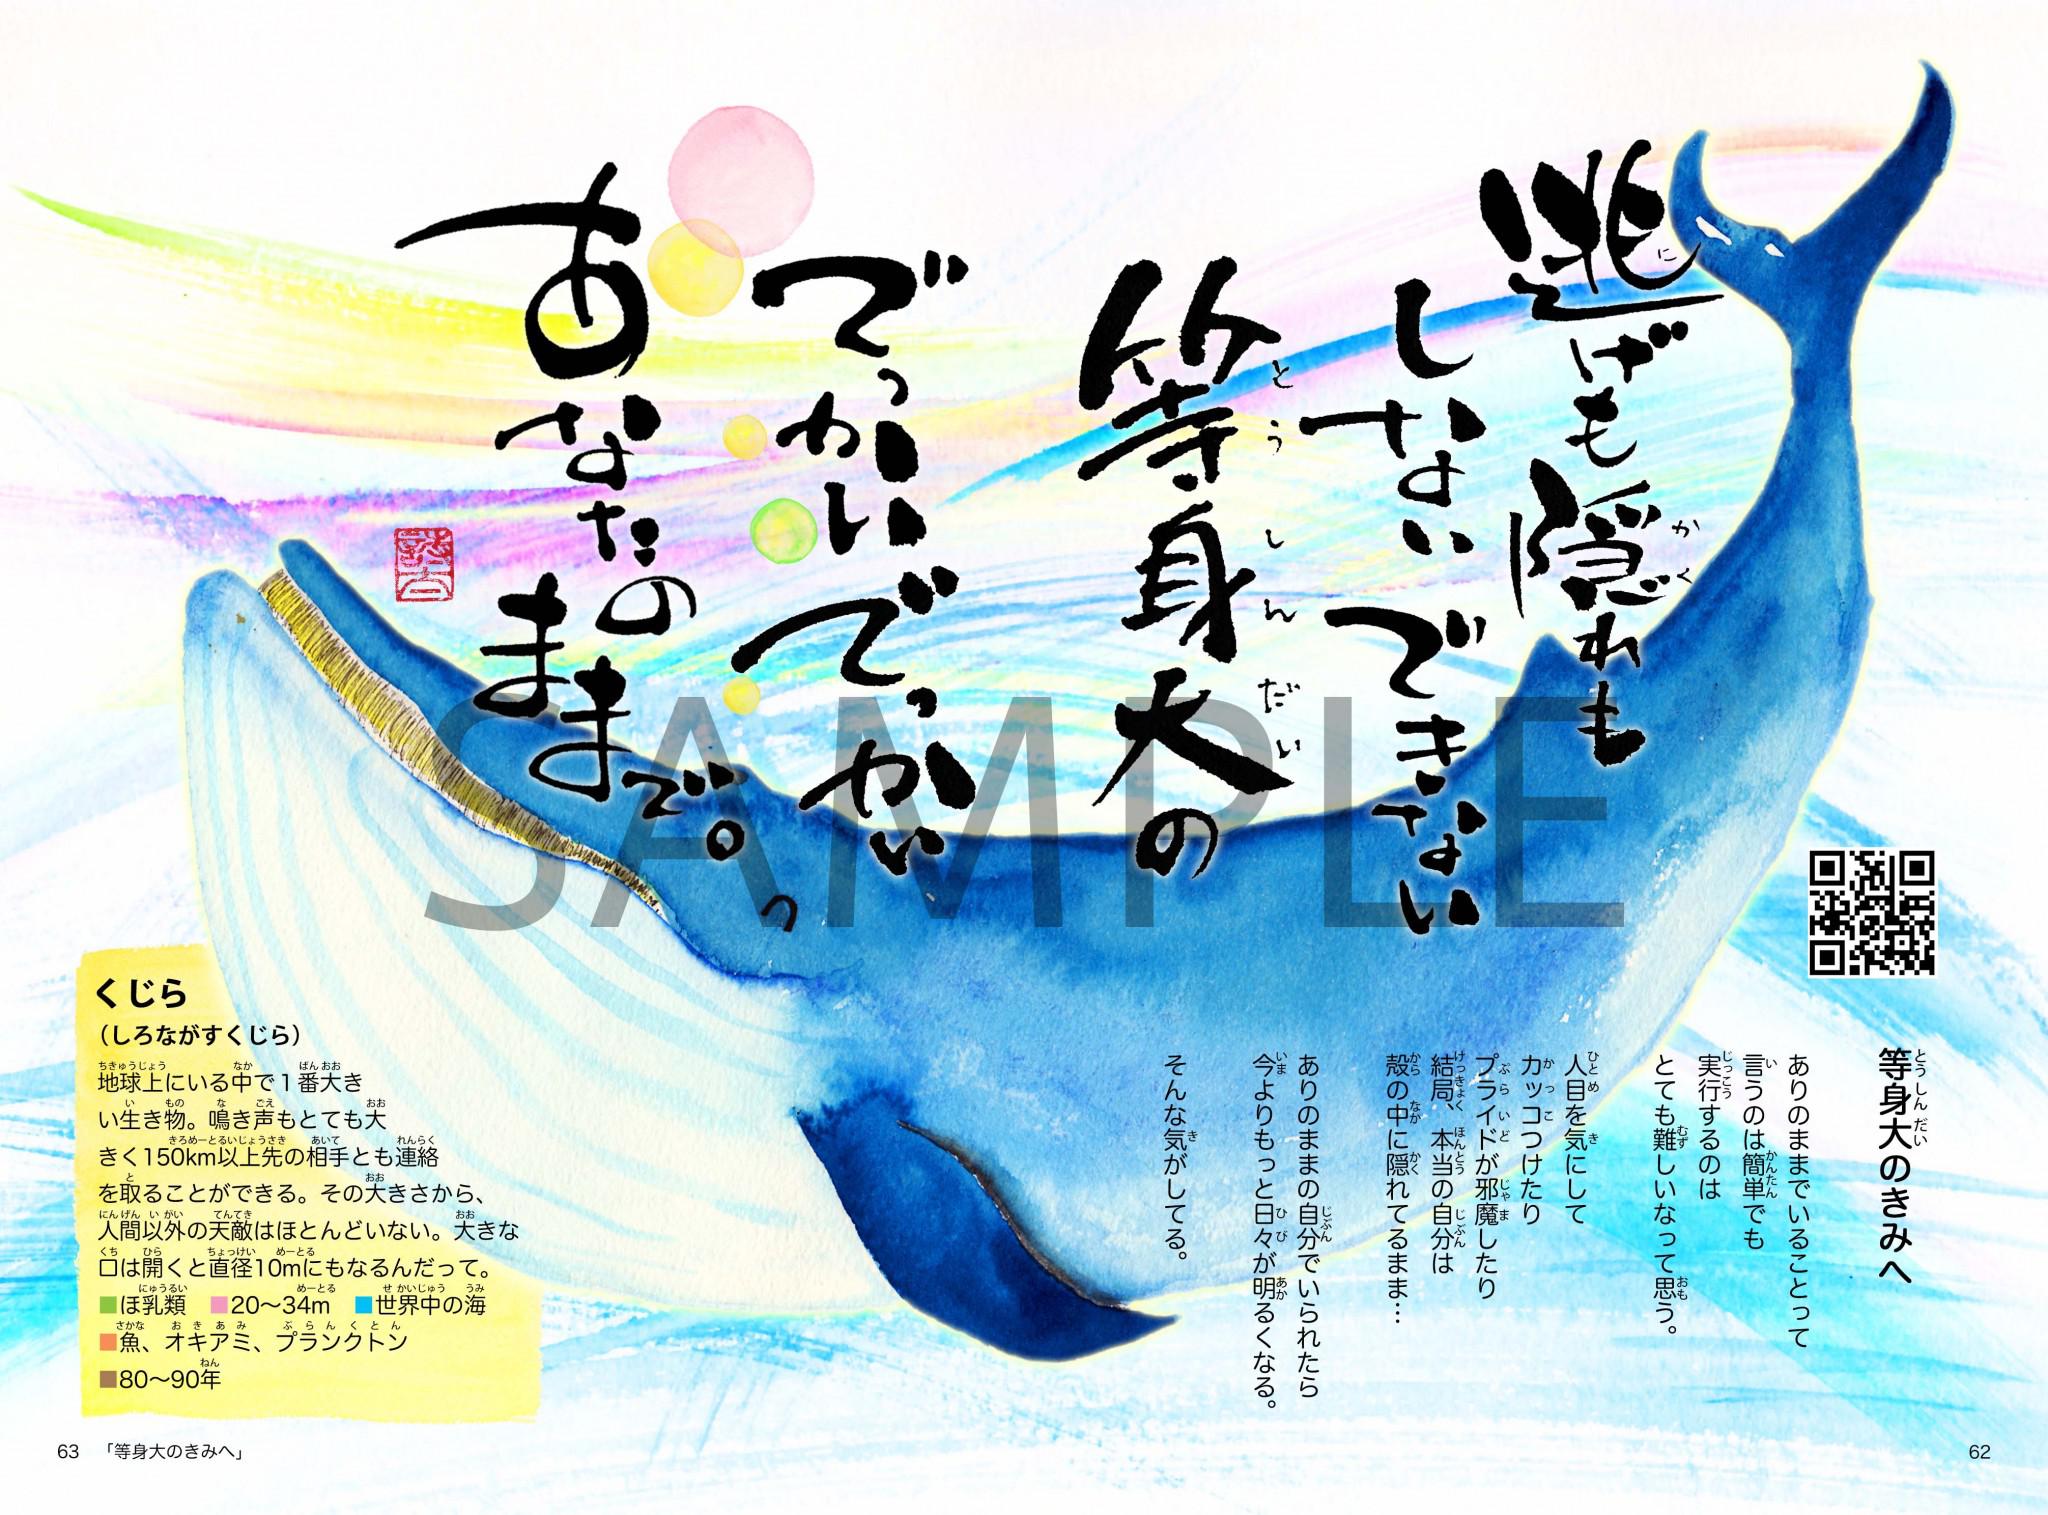 逃げも隠れも
しないできない
等身大の
でっかいでっかい
あなたのままで。
SAMPLE
等身大のきみへ
ありのままでいることって
言うのは簡単でも
実行するのは
とても難しいなって思う。
人目を気にして
カッコつけたり
プライドが邪魔したり
結局、本当の自分は
殻の中に隠れてるまま…
ありのままの自分でいられたら
今よりもっと日々が明るくなる。
そんな気がしてる。
くじら
（しろながすくじら）
地球上にいる中で１番大き
い生き物。鳴き声もとても大
きく150km以上先の相手とも連絡
を取ることができる。その大きさから、
人間以外の天敵はほとんどいない。大きな
口は開くと直径10mにもなるんだって。
■ほ乳類 ■20〜34m ■世界中の海
■魚、オキアミ、プランクトン
■80〜90年
63 「等身大のきみへ」
62